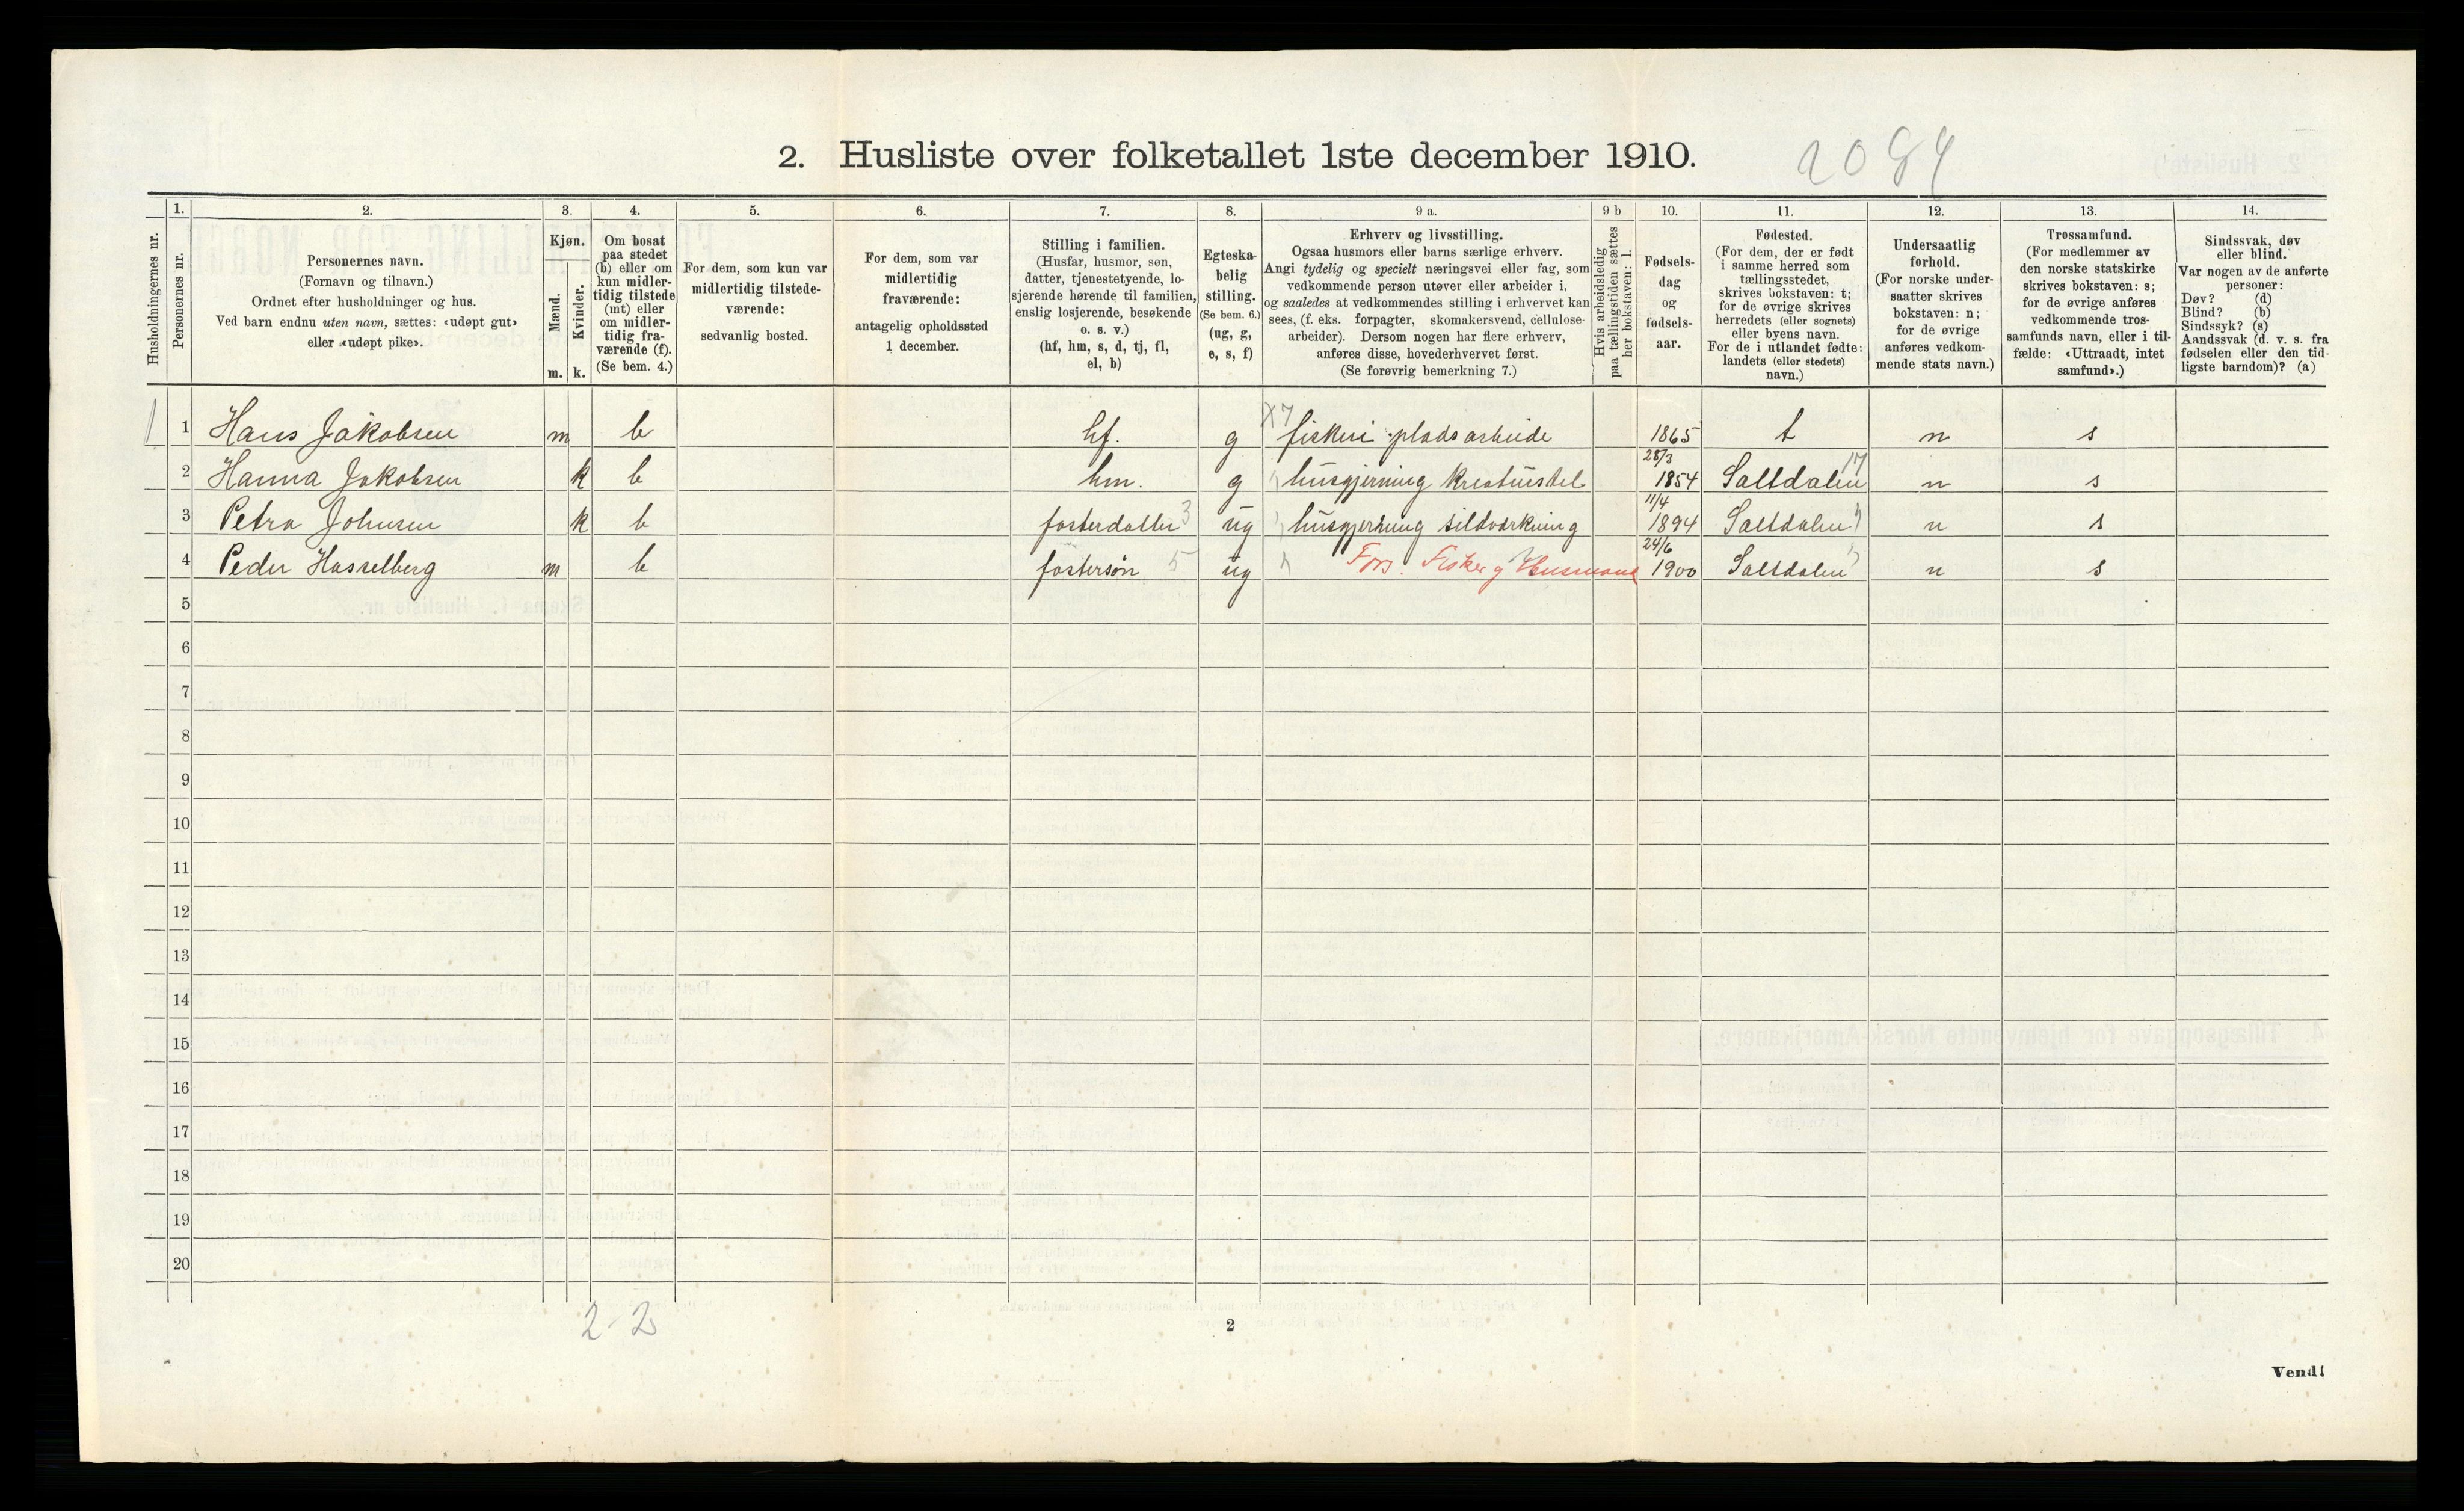 2. Husliste over folketallet 1ste december 1910.
2084
Husholdningernes nr.
1.
Personernes nr.
2.
Personernes navn.
(Fornavn og tilnavn.)
Ordnet efter husholdninger og hus.
Ved barn endnu uten navn, sættes: «udøpt gut»
eller «udøpt pike».
3.
Kjøn.
Mænd.
Kvinder.
m.
k.
4.
Om bosat
paa stedet
(b) eller om
kun midler-
tidig tilstede
(mt) eller
om midler-
tidig fra-
værende (f).
(Se bem. 4.)
5.
For dem, som kun var
midlertidig tilstede-
værende:
sedvanlig bosted.
6.
For dem, som var
midlertidig
fraværende:
antagelig opholdssted
1 december.
7.
Stilling i familien.
(Husfar, husmor, søn,
datter, tjenestetyende, lo-
sjerende hørende til familien,
enslig losjerende, besøkende
o. s. v.)
(hf, hm, s, d, tj, fl,
el, b)
8.
Egteska-
belig
stilling.
(Se bem. 6.)
(ug, g,
e, s, f)
9 a.
Erhverv og livsstilling.
Ogsaa husmors eller barns særlige erhverv.
Angi tydelig og specielt næringsvei eller fag, som
vedkommende person utøver eller arbeider i,
og saaledes at vedkommendes stilling i erhvervet kan
sees, (f. eks. forpagter, skomakersvend, cellulose-
arbeider). Dersom nogen har flere erhverv,
anføres disse, hovederhvervet først.
(Se forøvrig bemerkning 7.)
9 b
Hvis arbeidsledig
paa tællingstiden sættes
her bokstaven: l.
10.
Fødsels-
dag
og
fødsels-
aar.
11.
Fødested.
(For dem, der er født
i samme herred som
tællingsstedet,
skrives bokstaven: t;
for de øvrige skrives
herredets (eller sognets)
eller byens navn.
For de i utlandet fødte:
landets (eller stedets)
navn.)
12.
Undersaatlig
forhold.
(For norske under-
saatter skrives
bokstaven: n;
for de øvrige
anføres vedkom-
mende stats navn.)
13.
Trossamfund.
(For medlemmer av
den norske statskirke
skrives bokstaven: s;
for de øvrige anføres
vedkommende tros-
samfunds navn, eller i til-
fælde: «Uttraadt, intet
samfund».)
14.
Sindssvak, døv
eller blind.
Var nogen av de anførte
personer:
Døv? (d)
Blind? (b)
Sindssyk? (s)
Aandssvak (d. v. s. fra
fødselen eller den tid-
ligste barndom)? (a)
1 1 Hans Jakobsen m b hf. g X7 fiskeri pladsarbeide 1865 t n s
2 Hanna Jakobsen k b hm. g husgjerning kreaturstel 25/3 1854 Saltdalen 17 n s
3 Petra Johnsen k b fosterdatter 3 ug husgjerning sildvirkning 11/4 1894 Saltdalen n s
4 Peder Hasselberg m b fostersøn 5 ug Fors. Fisker og Husmand 24/6 1900 Saltdalen n s
5
6
7
8
9
10
11
12
13
14
15
16
17
18
19
20
2 2
2
Vend!